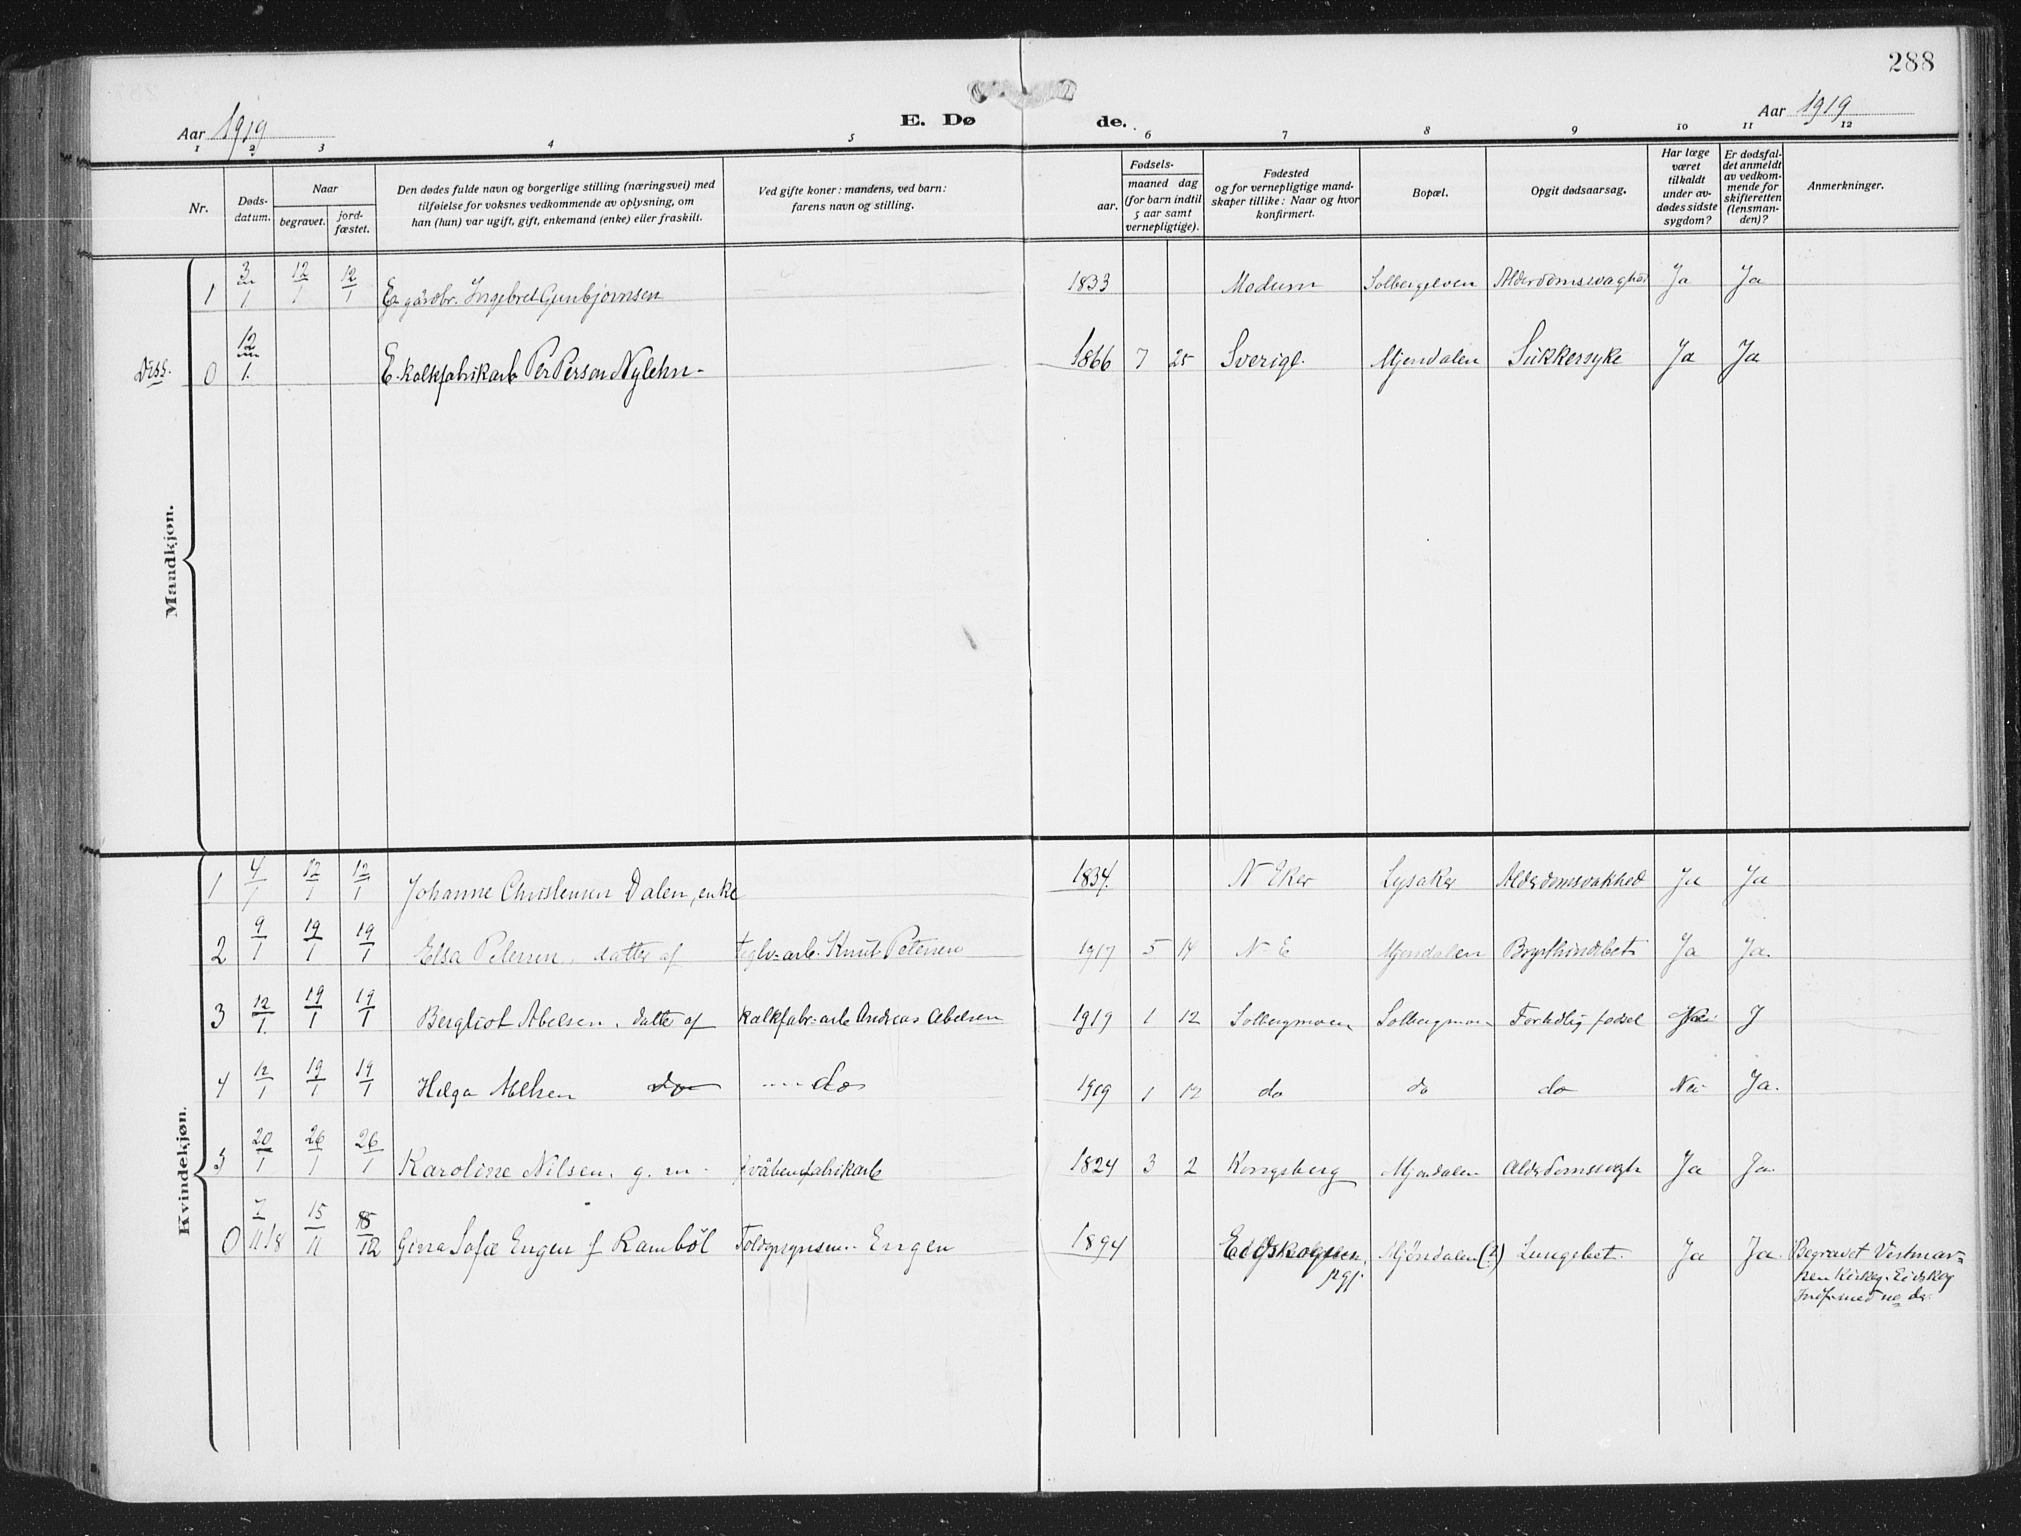 288
Aar 1919
E. Dø
de.
Aar 1919
1 2 3 4 5 6 7 8 9 10 11 12
Nr.
Døds-
datum.
Naar
begravet.
jord-
fæstet.
Den dødes fulde navn og borgerlige stilling (næringsvei) med
tilføielse for voksnes vedkommende av oplysning, om
han (hun) var ugift, gift, enkemand (enke) eller fraskilt.
Ved gifte koner: mandens, ved barn:
farens navn og stilling.
Fødsels-
aar.
maaned dag
(for barn indtil
5 aar samt
vernepligtige).
Fødested
og for vernepligtige mand-
skaper tillike: Naar og hvor
konfirmert.
Bopæl.
Opgit dødsaarsag.
Har læge
været
tilkaldt
under av-
dødes sidste
sygdom?
Er dødsfal-
det anmeldt
av vedkom-
mende for
skifteretten
(lensman-
den)?
Anmerkninger.
Mandkjøn.
1 3/1 12/1 12/1 gårdbr. Ingebret Gunbjørnsen 1833 Modum Solbergelven Ja Ja
Diss. 0 12/1 E. kalkfabrikarb Per Person Nylehn 1866 7 25 Sverige Mjøndalen Sukkersyke Ja Ja
Kvindekjøn.
1 4/1 12/1 12/1 Johanne Christensen Dalen, enke 1834. N Eker Lysaker Alderdomsvakhed Ja Ja
2 9/1 19/1 19/1 Elsa Petersen, datter af teglv-arb. Knut Petersen 1917 5 14 N E Mjøndalen Ja Ja.
3 12/1 19/1 19/1 Bergliot Abelsen, datter af kalkfabr-arb Andreas Abelsen 1919 1 12 Solbergmoen Solbergmoen Fortidlig fødsel J
4 12/1 19/1 19/1 Helga Abelsen do do 1919 1 12 do do do Nei Ja.
5 20/1 26/1 26/1 Karoline Nilsen, g. m. våbenfabrikarb 1824 3 2 Kongsberg Mjøndalen Ja Ja
0 7/11 18 15/11 Gina Sofie Engen f Rambøl Engen 1894 Eidskogen Mjøndalen (?) Lungebet. Ja Ja. Begravet Vestmar-
pgj.
ken Kirkeg. Eidskog